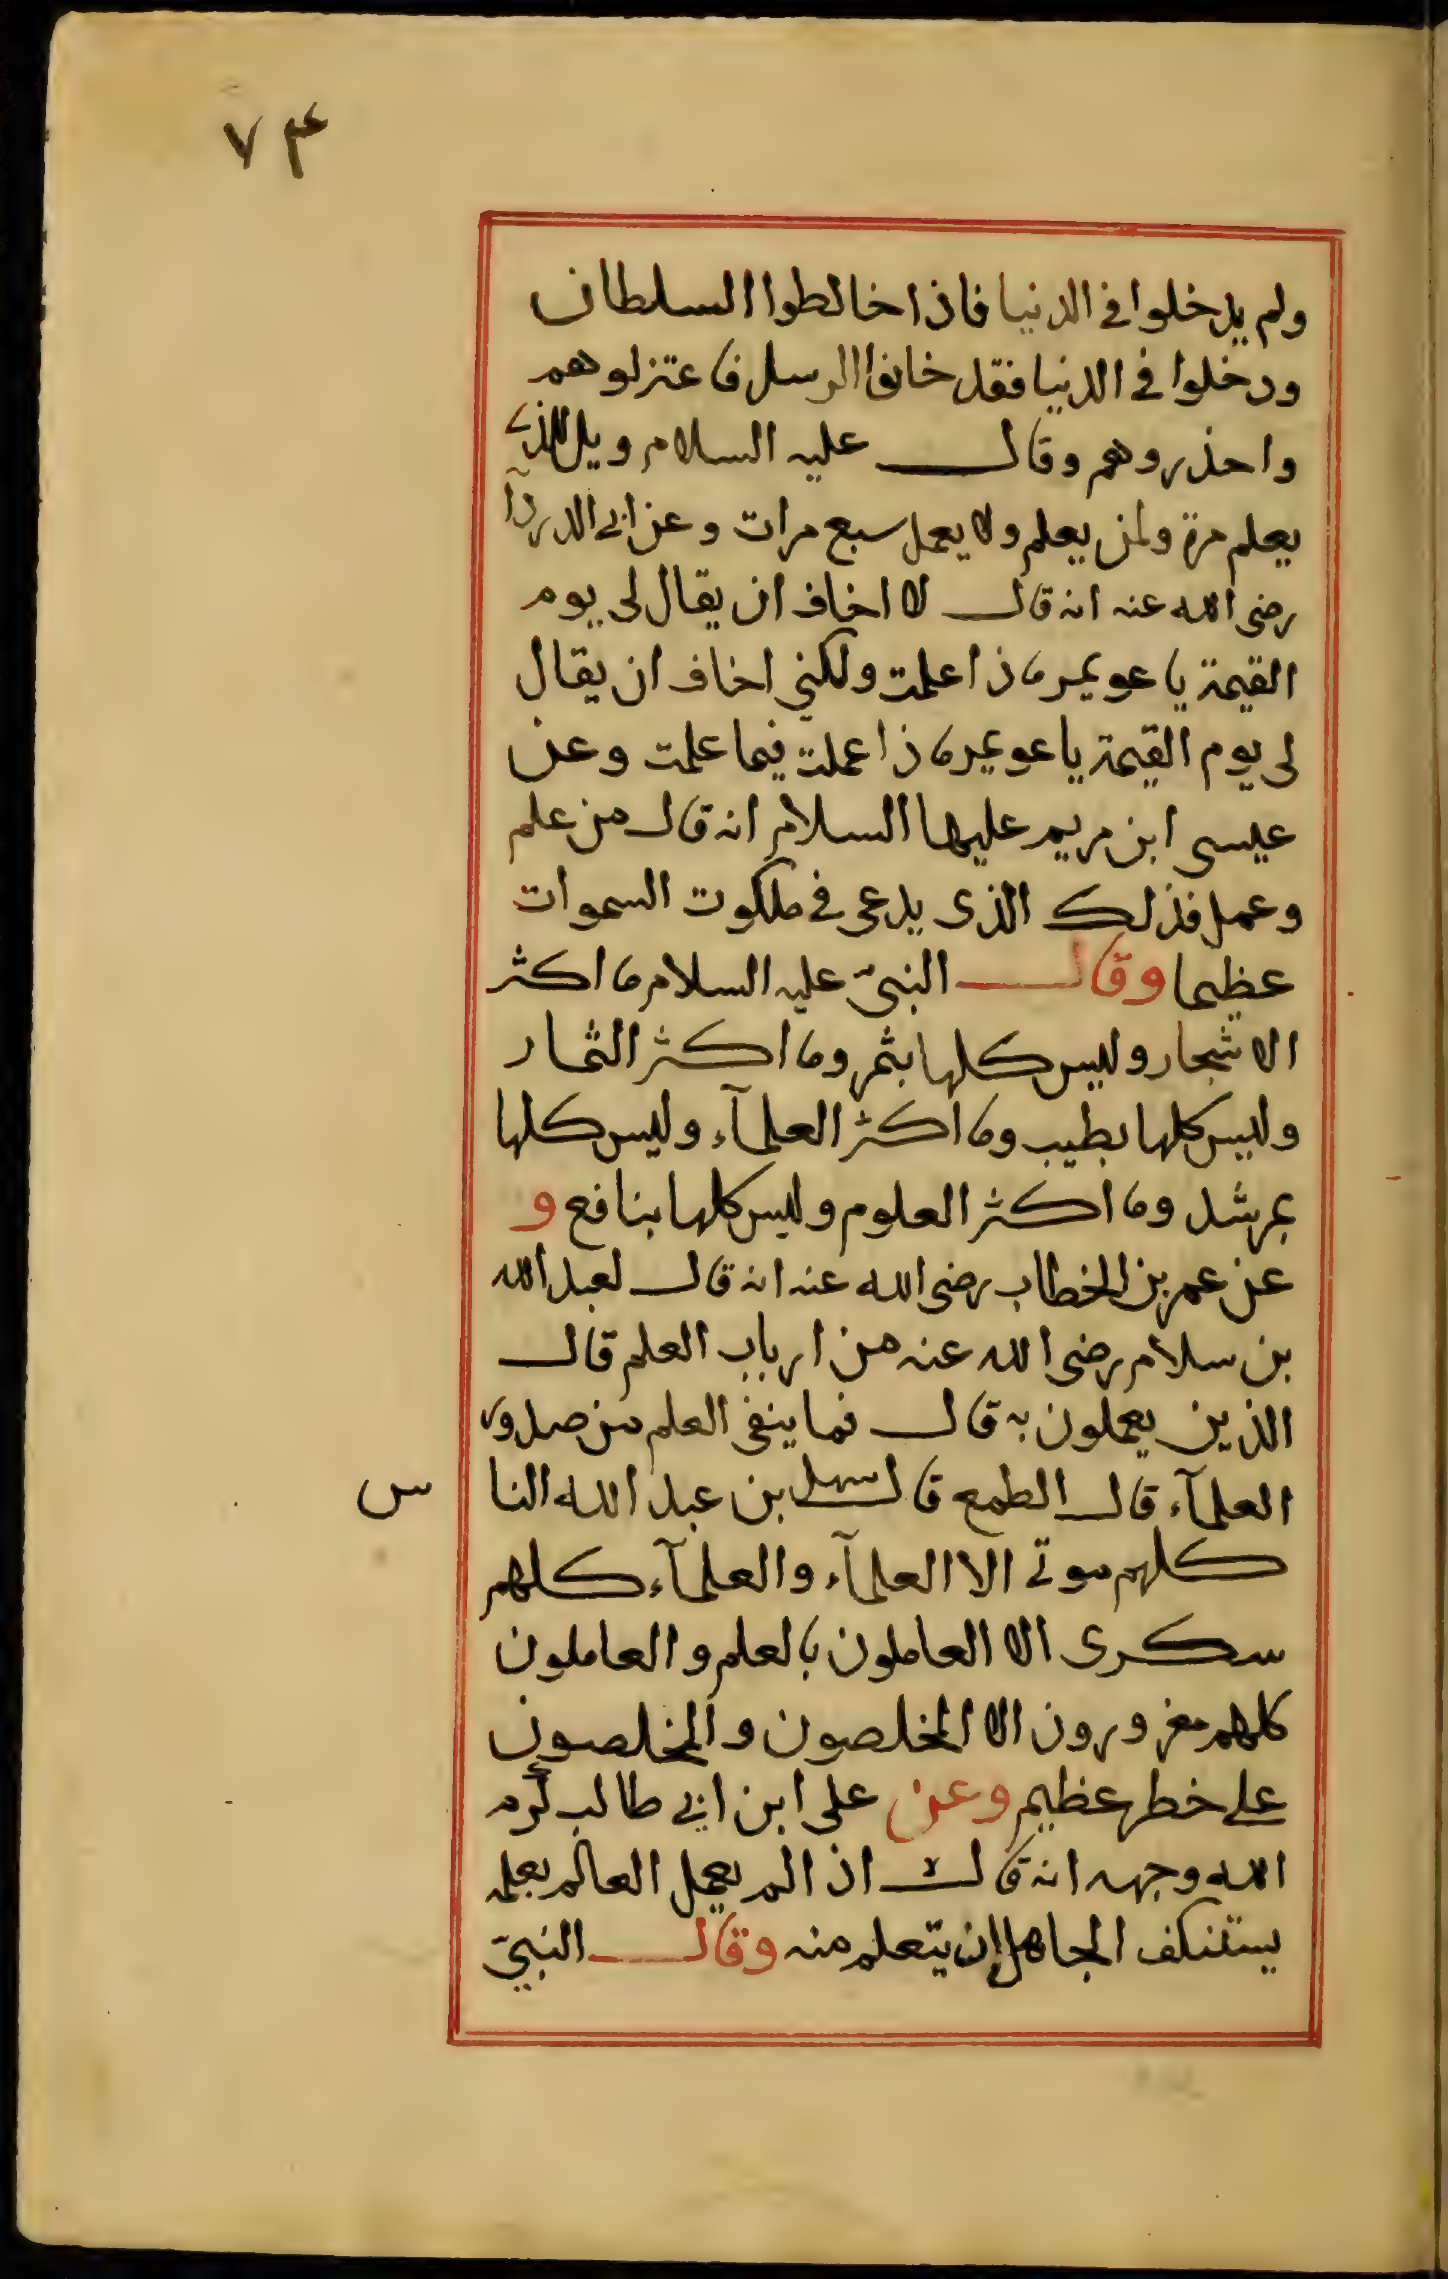 ٧٤
ولم يدخلوا في الدنيا فاذا خالطوا السلطان
ودخلوا في الدنيا فقد خانوا الرسل فاعتزلوهم
واحذروهم وقال عليه السلام ويل للذى
يعلم مرة ولمن يعلم ولا يعمل سبع مرات وعن ابى الدردآ
رضى الله عنه انه قال لا اخاف ان يقال لى يوم
القيمة يا عويمر ماذا علمت ولكني اخاف ان يقال
لى يوم القيمة يا عويمر ماذا عملت فيما علمت وعن
عيسى ابن مريم عليهما السلام انه قال من علم
وعمل فذلك الذى يدعى في ملكوت السموات
عظيما وقال النبىّ عليه السلام ما اكثر
الاشجار وليس كلها بثمر وما اكثر الثمار
وليس كلها بطيب وما اكثر العلمآء وليس كلها
بمرشد وما اكثر العلوم وليس كلها بنافع و
عن عمر بن الخطاب رضى الله عنه انه قال لعبد الله
بن سلام رضى الله عنه من ارباب العلم قال
الذين يعملون به قال فما ينفى العلم من صدور
العلمآء قال الطمع قال سهل بن عبد الله النا س
كلهم موتى الا العلمآء والعلمآء كلهم
سكرى الا العاملون بالعلم والعاملون
كلهم مغرورون الا المخلصون والمخلصون
على خطر عظيم وعن على ابن ابى طالب كرم
الله وجهه انه قال اذا لم يعمل العالم بعلمه
يستنكف الجاهل ان يتعلم منه وقال النبىّ